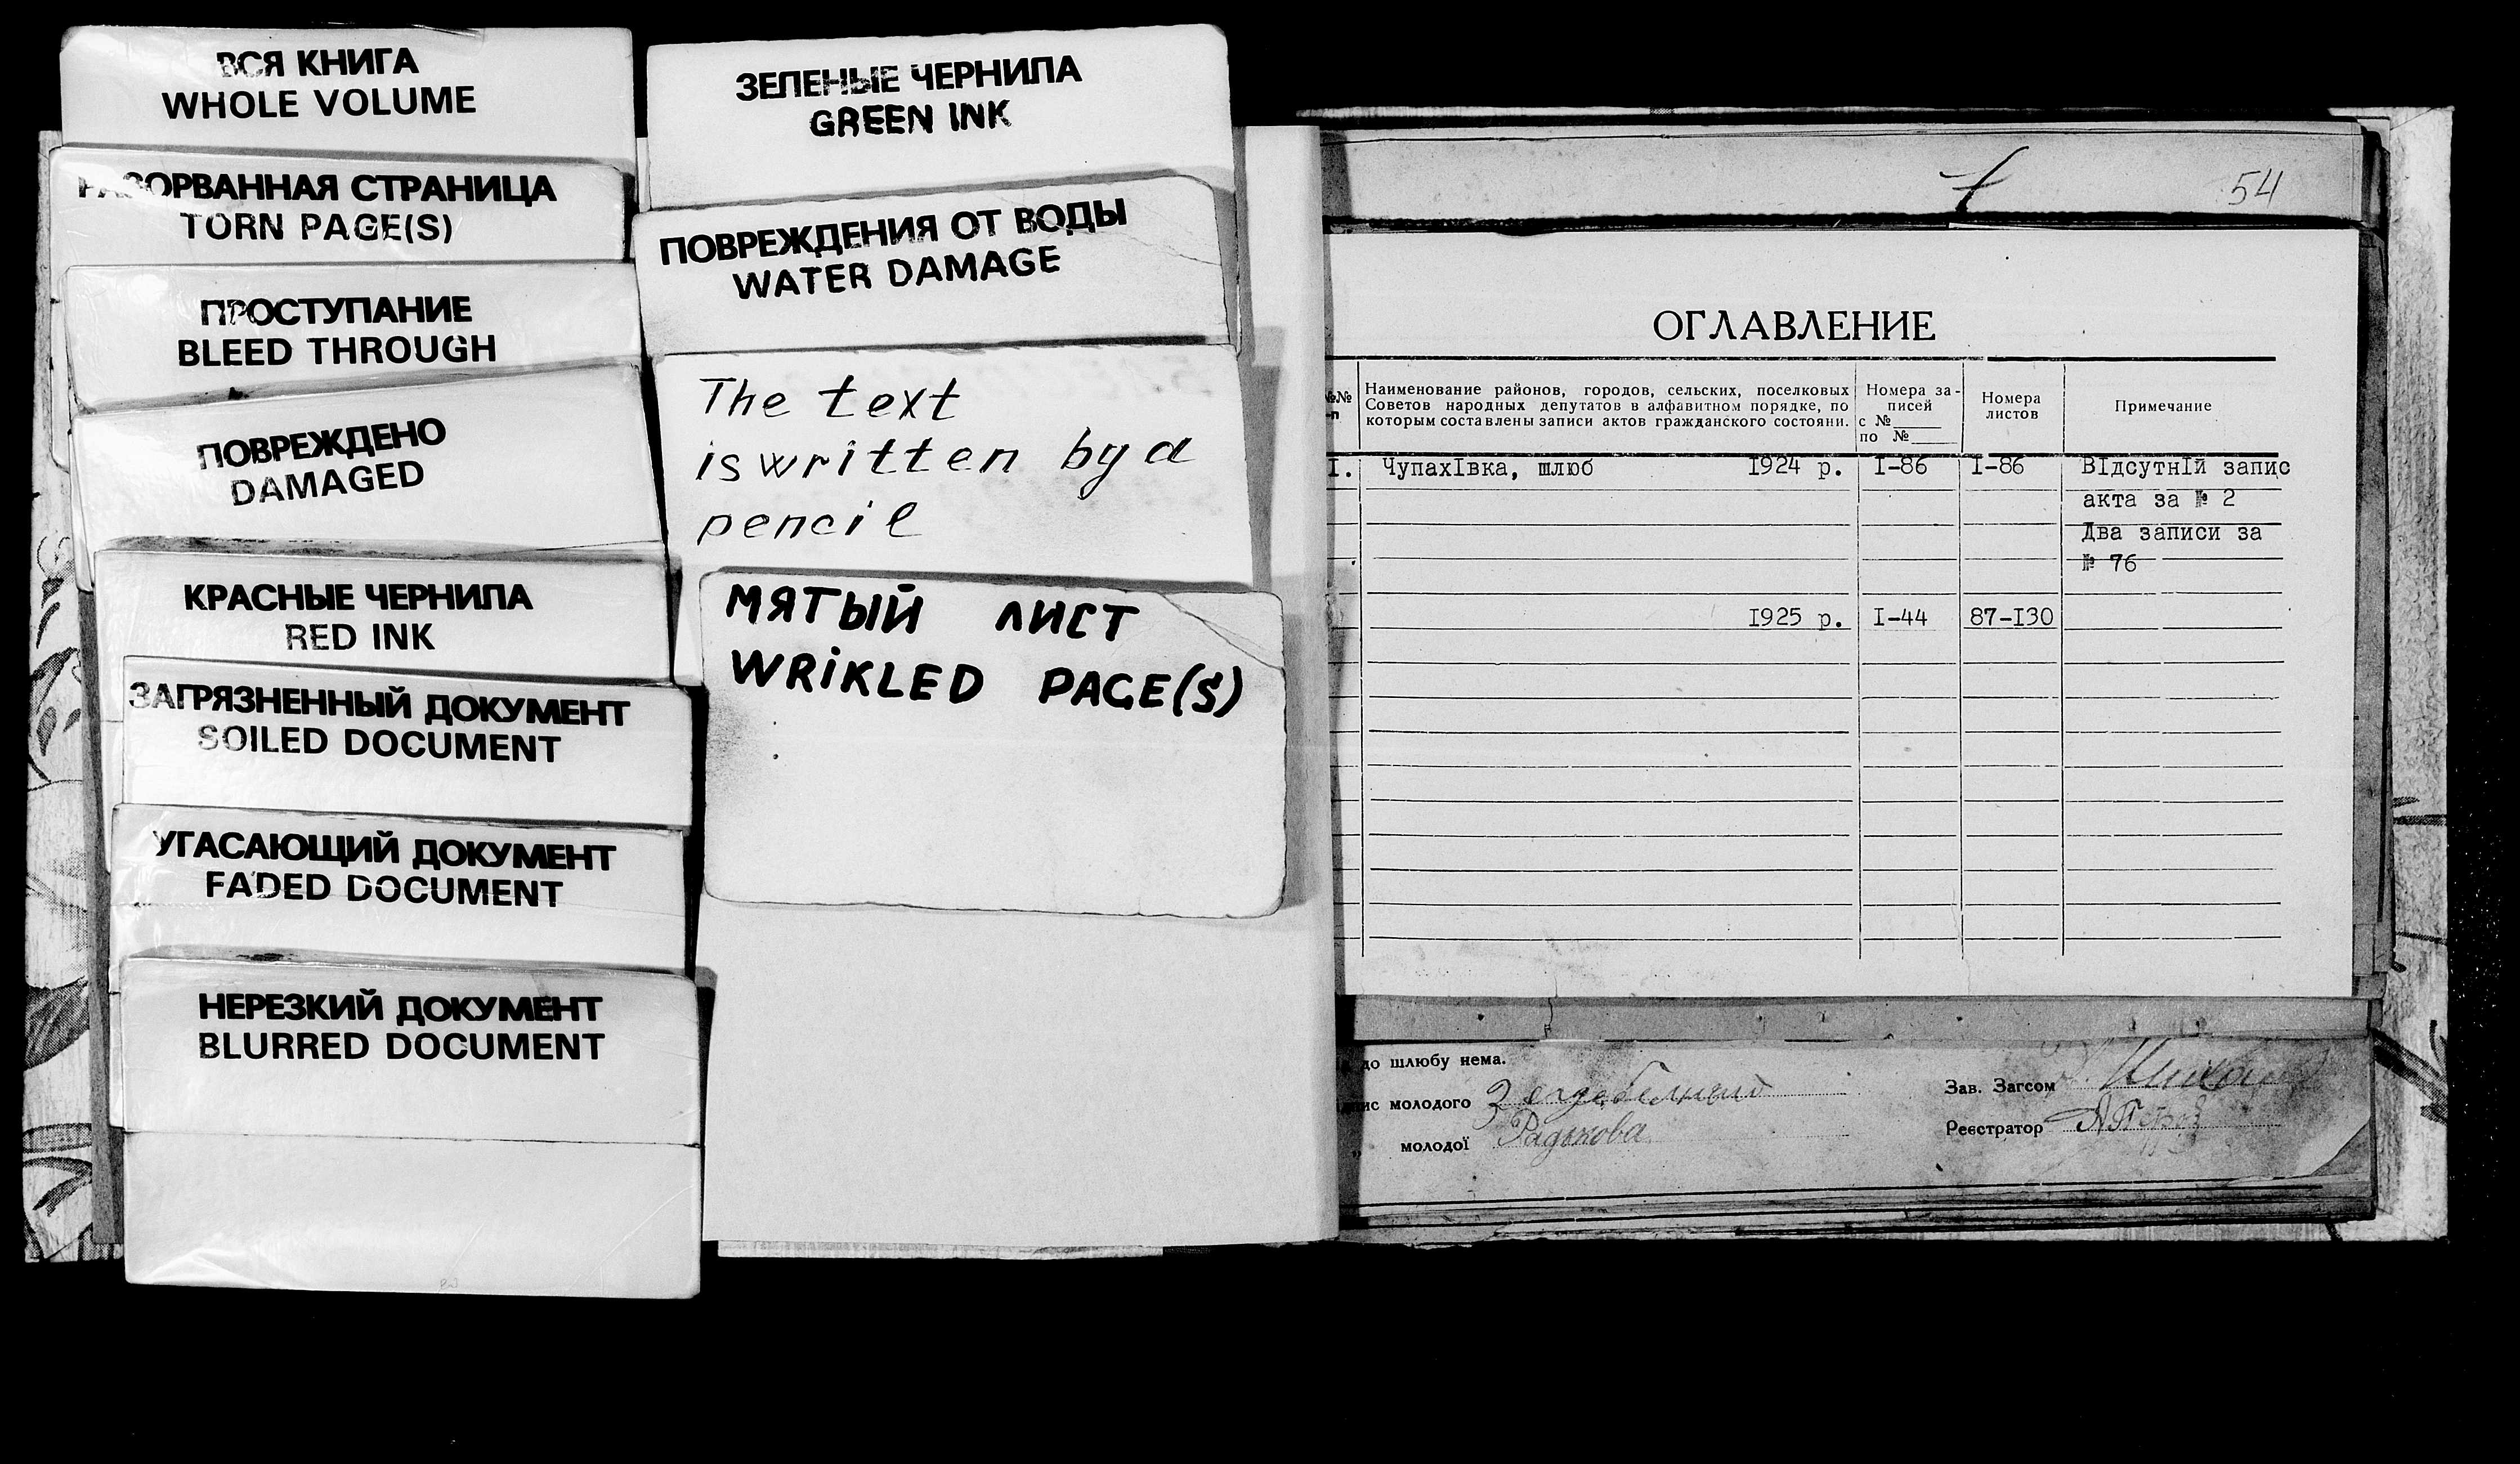 ВСЯ КНИГА
WHOLE VOLUME
РАЗОРВАННАЯ СТРАНИЦА
TORN PAGE(S)
ПРОСТУПАНИЕ
BLEED THROUGH
ПОВРЕЖДЕНО
DAMAGED
КРАСНЫЕ ЧЕРНИЛА
RED INK
ЗАГРЯЗНЕННЫЙ ДОКУМЕНТ
SOILED DOCUMENT
УГАСАЮЩИЙ ДОКУМЕНТ
FADED DOCUMENT
НЕРЕЗКИЙ ДОКУМЕНТ
BLURRED DOCUMENT
ЗЕЛЕНЫЕ ЧЕРНИЛА
GREEN INK
ПОВРЕЖДЕНИЯ ОТ ВОДЫ
WATER DAMAGE
The text
is written by a
pencil
МЯТЫЙ ЛИСТ
WRIKLED PAGE(S)
54
ОГЛАВЛЕНИЕ
№№ Наименование районов, городов, сельских, поселковых Советов народных депутатов в алфавитном порядке, по которым составлены записи актов гражданского состояни. Номера записей с №____ по №____ Номера листов Примечание
I. ЧупахIвка, шлюб 1924 р. I-86 I-86 ВIдсутнIй запис
акта за № 2
Два записи за
№ 76
1925 р. I-44 87-130
до шлюбу нема.
молодого
Зав. Загсом
молодої Радькова
Реєстратор